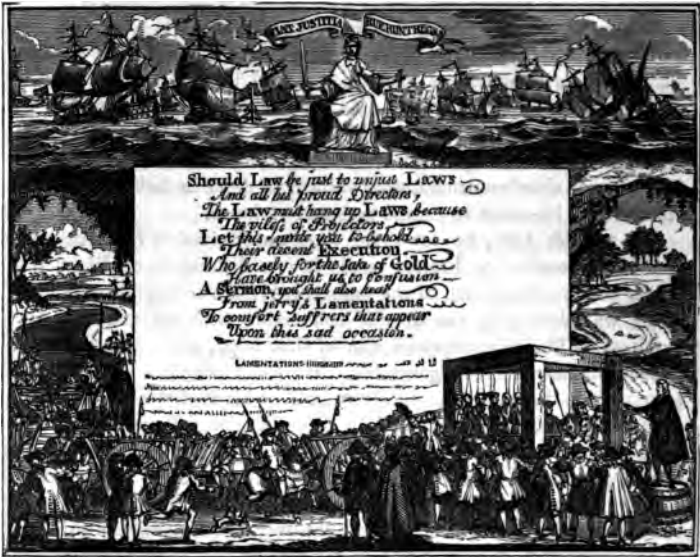 FIAT JUSTITIA
RUE RUNT
Should Law be just to unjust Laws
And all his proud Directors,
The Law must hang up Laws because
The viless of Projectors
Let this invite you to behold
Their decent Execution
Who basely for the sake of Gold
Have brought us to confusion
A Sermon, you shall also hear
From jerry's Lamentations
To comfort suff'rers that appear
Upon this sad occasion.
LAMENTATIONS